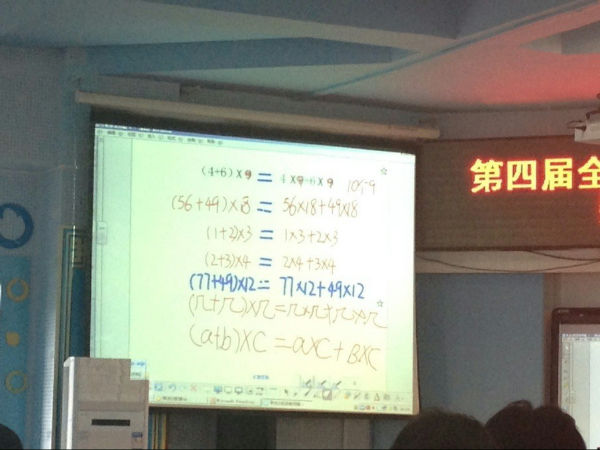 (4+6)×9 = 4×9+6×9
(56+49)×18 = 56×18+49×18
(1+2)×3 = 1×3+2×3
(2+3)×4 = 2×4+3×4
(77+49)×12 = 77×12+49×12
(a+b)×C = a×C+B×C
第四届全